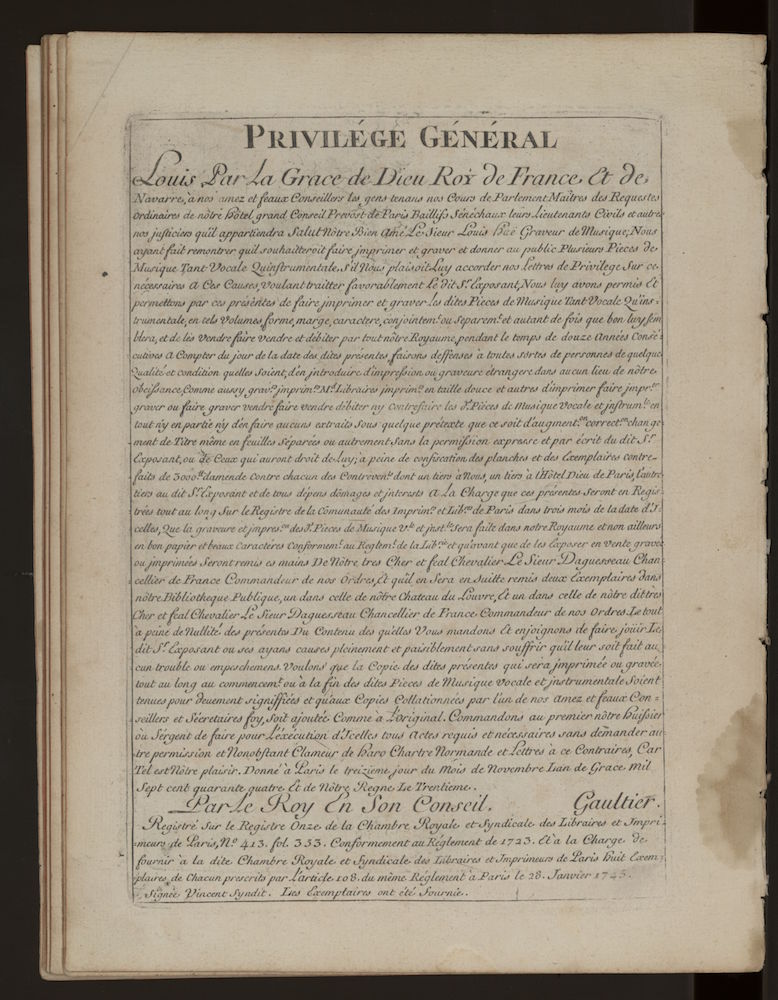 PRIVILÉGE GÉNÉRAL
Louis Par La Grace de Dieu Roy de France, Et de
Navarre, à nos amez et feaux Conseillers les gens tenans nos Cours de Parlement Maitres des Requestes
Ordinaires de nôtre Hôtel grand Conseil Prevôst de Paris Baillifs Sénéchaux leurs Lieutenants Civils et autre
nos justiciers quil appartiendra Salut Nôtre Bien Amé Le Sieur Louis Huë Graveur de Musique; Nous
ayant fait remontrer quil souhaitteroit faire jmprimer et graver et donner au public Plusieurs Pieces de
Musique Tant Vocale Quinstrumentale, S'il Nous plaisoit Luy accorder nos Lettres de Privilege Sur ce
nécessaires A Ces Causes, Voulant traitter favorablement Le dit Sr. Exposant, Nous luy avons permis Et
permettons par ces présentes de faire jmprimer et graver Les dites Pieces de Musique Tant Vocale Qu'ins-
trumentale, en tels Volumes, forme, marge, caractere, conjointemt. ou Separemt. et autant de fois que bon luy sem
blera, et de les Vendre faire Vendre et débiter par tout nôtre Royaume, pendant le temps de douze Années Consé-
cutives A Compter du jour de la date des dites présentes, faisons deffenses à toutes sortes de personnes de quelque
Qualité et condition quelles Soient, d'en jntroduire d'impression ou graveure étrangere dans aucun lieu de nôtre
obeissance, Comme aussy gravrs. jmprimrs. Mds. Libraires jmprimrs. en taille douce et autres d'imprimer faire jmprr.
graver ou faire graver vendre faire vendre débiter ny contrefaire les ds. Pièces de Musique Vocale et jnstrumle. en
tout ny en partie ny d'en faire aucuns extraits Sous quelque prétexte que ce soit d'augmenton. correcton. change
ment de Titre même en feuilles Séparées ou autrement Sans la permission expresse et par écrit du dit Sr.
Exposant, ou de Ceux qui auront droit de Luy, à peine de confiscation des planches et des Exemplaires contre-
faits de 3000tt damende Contre chacun des Contrevents. dont un tiers à Nous, un tiers à l'Hôtel Dieu de Paris, l'autre
tiers au dit Sr. Exposant et de tous dépens dômages et jnterests A La Charge que ces présentes Seront en Regis
trées tout au long Sur le Registre de la Cômunauté des Imprims. et Librs. de Paris dans trois mois de la date d'J-
celles, Que la graveure et jmpreson. des ds. Pieces de Musique Vle. et jnstle. Sera faite dans notre Royaume et non ailleurs
en bon papier et beaux Caracteres Conformemt. au Reglemt. de la Librie. et qu'avant que de les Exposer en Vente gravée
ou jmprimées Seront remis es mains De Nôtre, tres Cher et feal Chevalier Le Sieur Daguesseau Chan
cellier de France Commandeur de nos Ordres, Et quil en Sera en Suitte remis deux Exemplaires dans
nôtre Bibliotheque Publique, un dans celle de nôtre Chateau du Louvre, Et un dans celle de nôtre dit tres
Cher et feal Chevalier Le Sieur Daguesseau Chancellier de France Commandeur de nos Ordres Le tout
à peine de Nullité des présentes Du Contenu des quelles Vous mandons Et enjoignons de faire jouir Le
dit Sr. Exposant ou ses ayans causes pleinement et paisiblement sans souffrir quil leur soit fait au
cun trouble ou empeschemens. Voulons que la Copie des dites présentes qui sera jmprimée ou gravée
tout au long au commencemt. ou à la fin des dites Pieces de Musique vocale et jnstrumentale Soient
tenues pour duement signiffiées et qu'aux Copies Collationnées par l'un de nos Amez et feaux Con-
seillers et Sécretaires foy, Soit ajoutée Comme à L'original. Commandons au premier nôtre huissier
ou Sergent de faire pour L'éxécution d'Jcelles tous Actes requis et nécessaires sans demander au
tre permission et Nonobstant Clameur de haro Chartre Normande et Lettres à ce Contraires, Car
Tel est Nôtre plaisir. Donné à Paris le treizieme jour du Mois de Novembre Lan de Grace mil
Sept cent quarante quatre Et de Nôtre Regne Le Trentieme.
Par Le Roy En Son Conseil. Gaultier.
Registré Sur le Registre Onze de la Chambre Royale et Syndicale des Libraires et Impri-
meurs de Paris, No. 413. fol. 353. Conformement au Réglement de 1723. Et à la Charge de
fournir à la dite Chambre Royale et Syndicale des Libraires et Jmprimeurs de Paris huit Exem-
plaires de Chacun prescrits par L'article 108. du même Réglement à Paris le 28. Janvier 1745.
Signée Vincent Syndit. Les Exemplaires ont été Fournie.